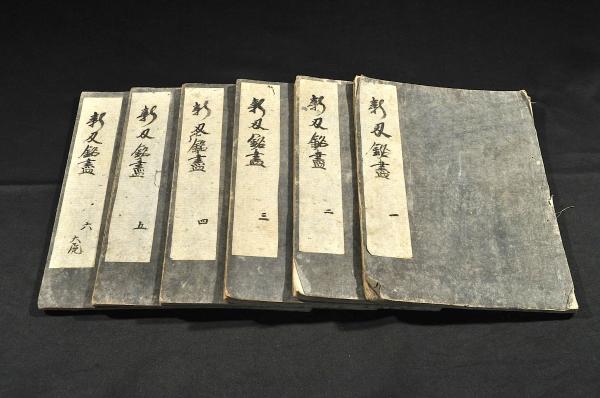 新刄銘盡 一
新刄銘盡 二
新刄銘盡 三
新刄銘盡 四
新刄銘盡 五
新刄銘盡 六
大尾